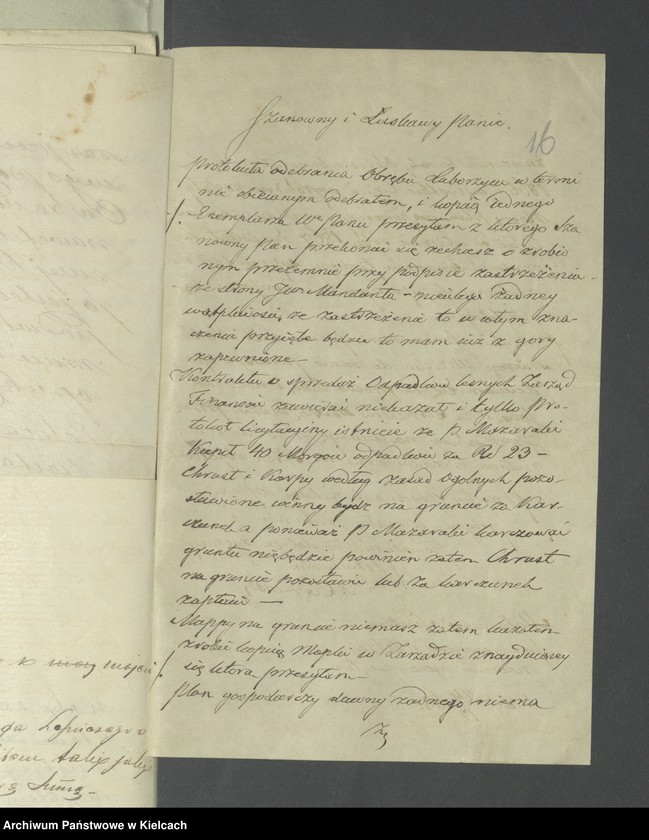 16
Szanowny i Łaskawy Panie.
Protokuła odebrania Obrębu Łaborzyce w termi
nie obiecanym odebrałem, i kopią jednego
/. Exemplarza Wu Panu przesyłam z którego Sza
nowny Pan przekonać się zechcesz o zrobio
nym przezemnie przy podpisie zastrzeżeniu
ze strony JWo Mandanta - nieulega żadney
wątpliwości, że zastrzeżenie to w całym zna-
czeniu przyięte będzie to mam już z gory
zapewnione -
Kontraktu o sprzedaż Odpadków leśnych Zarząd
Finansów zawierać niekazał i tylko Pro-
tokół licytacyjny istnieie że P Mazaraki
Kupił 40 Morgów odpadków za Rs 23 -
Chrust i Karpy według zasad Ogólnych pozo-
stawione winny bydź na gruncie za Kar-
czunek a ponieważ P Mazaraki karczować
gruntu niebędzie powinien zatem Chrust
na gruncie pozostawić lub za karczunek
zapłacić —
Mappy na gruncie niemasz zatem kazałem
zrobić kopię Mapki w Zarządzie znayduiącey
/ się którą przesyłam -
Plan gospodarczy dawny żadnego niema
Archiwum Państwowe w Kielcach